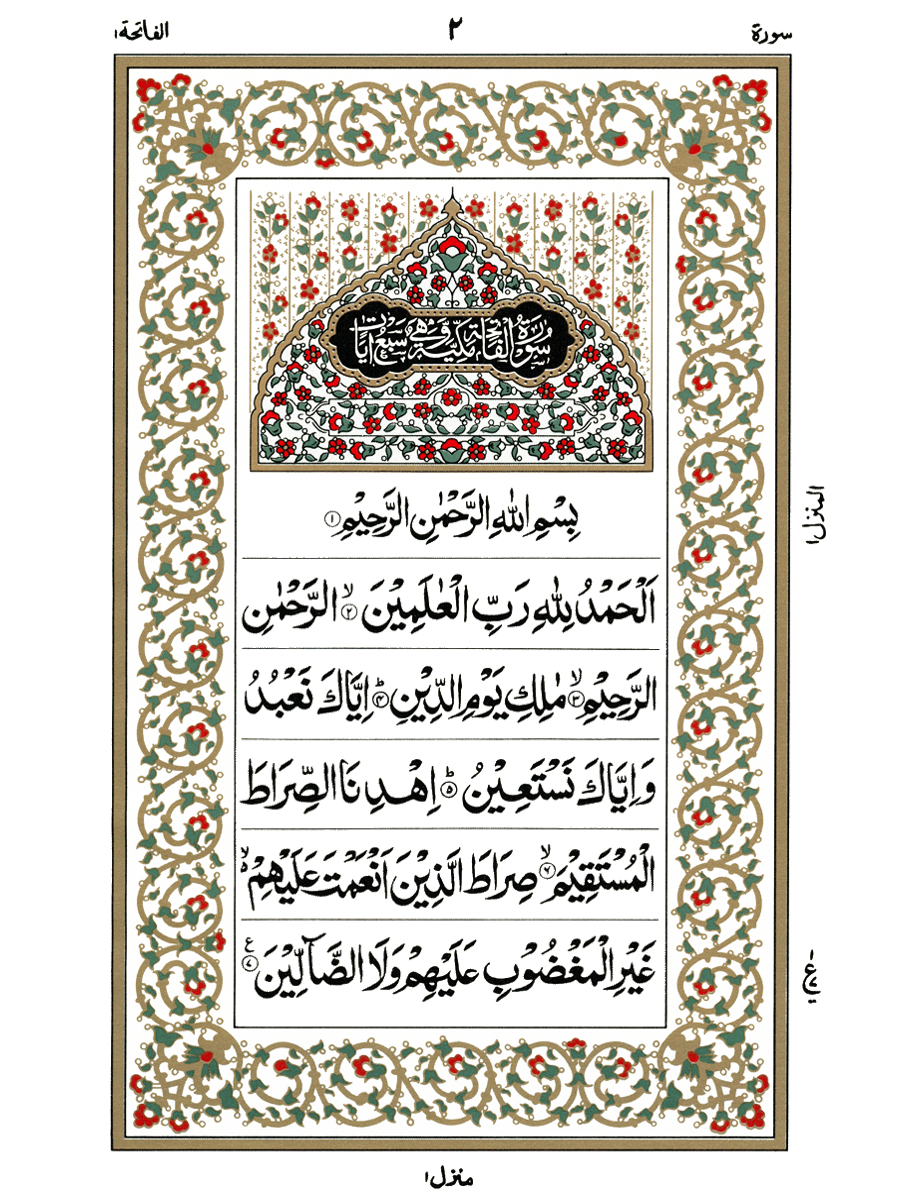 سورة ٢ الفاتحة ١
سُوْرَةُ الْفَاتِحَةِ مَكِّيَّةٌ وَّهِيَ سَبْعُ اٰيَاتٍ
بِسْمِ اللّٰهِ الرَّحْمٰنِ الرَّحِيْمِ ۝١
اَلْحَمْدُ لِلّٰهِ رَبِّ الْعٰلَمِيْنَ ۝٢ۙ الرَّحْمٰنِ
الرَّحِيْمِ ۝٣ۙ مٰلِكِ يَوْمِ الدِّيْنِ ۝٤ؕ اِيَّاكَ نَعْبُدُ
وَاِيَّاكَ نَسْتَعِيْنُ ۝٥ؕ اِهْدِنَا الصِّرَاطَ
الْمُسْتَقِيْمَ ۝٦ۙ صِرَاطَ الَّذِيْنَ اَنْعَمْتَ عَلَيْهِمْ ۙ۬ۥ
غَيْرِ الْمَغْضُوْبِ عَلَيْهِمْ وَلَا الضَّآلِّيْنَ ۝٧ع
المنزل ١
منزل ١